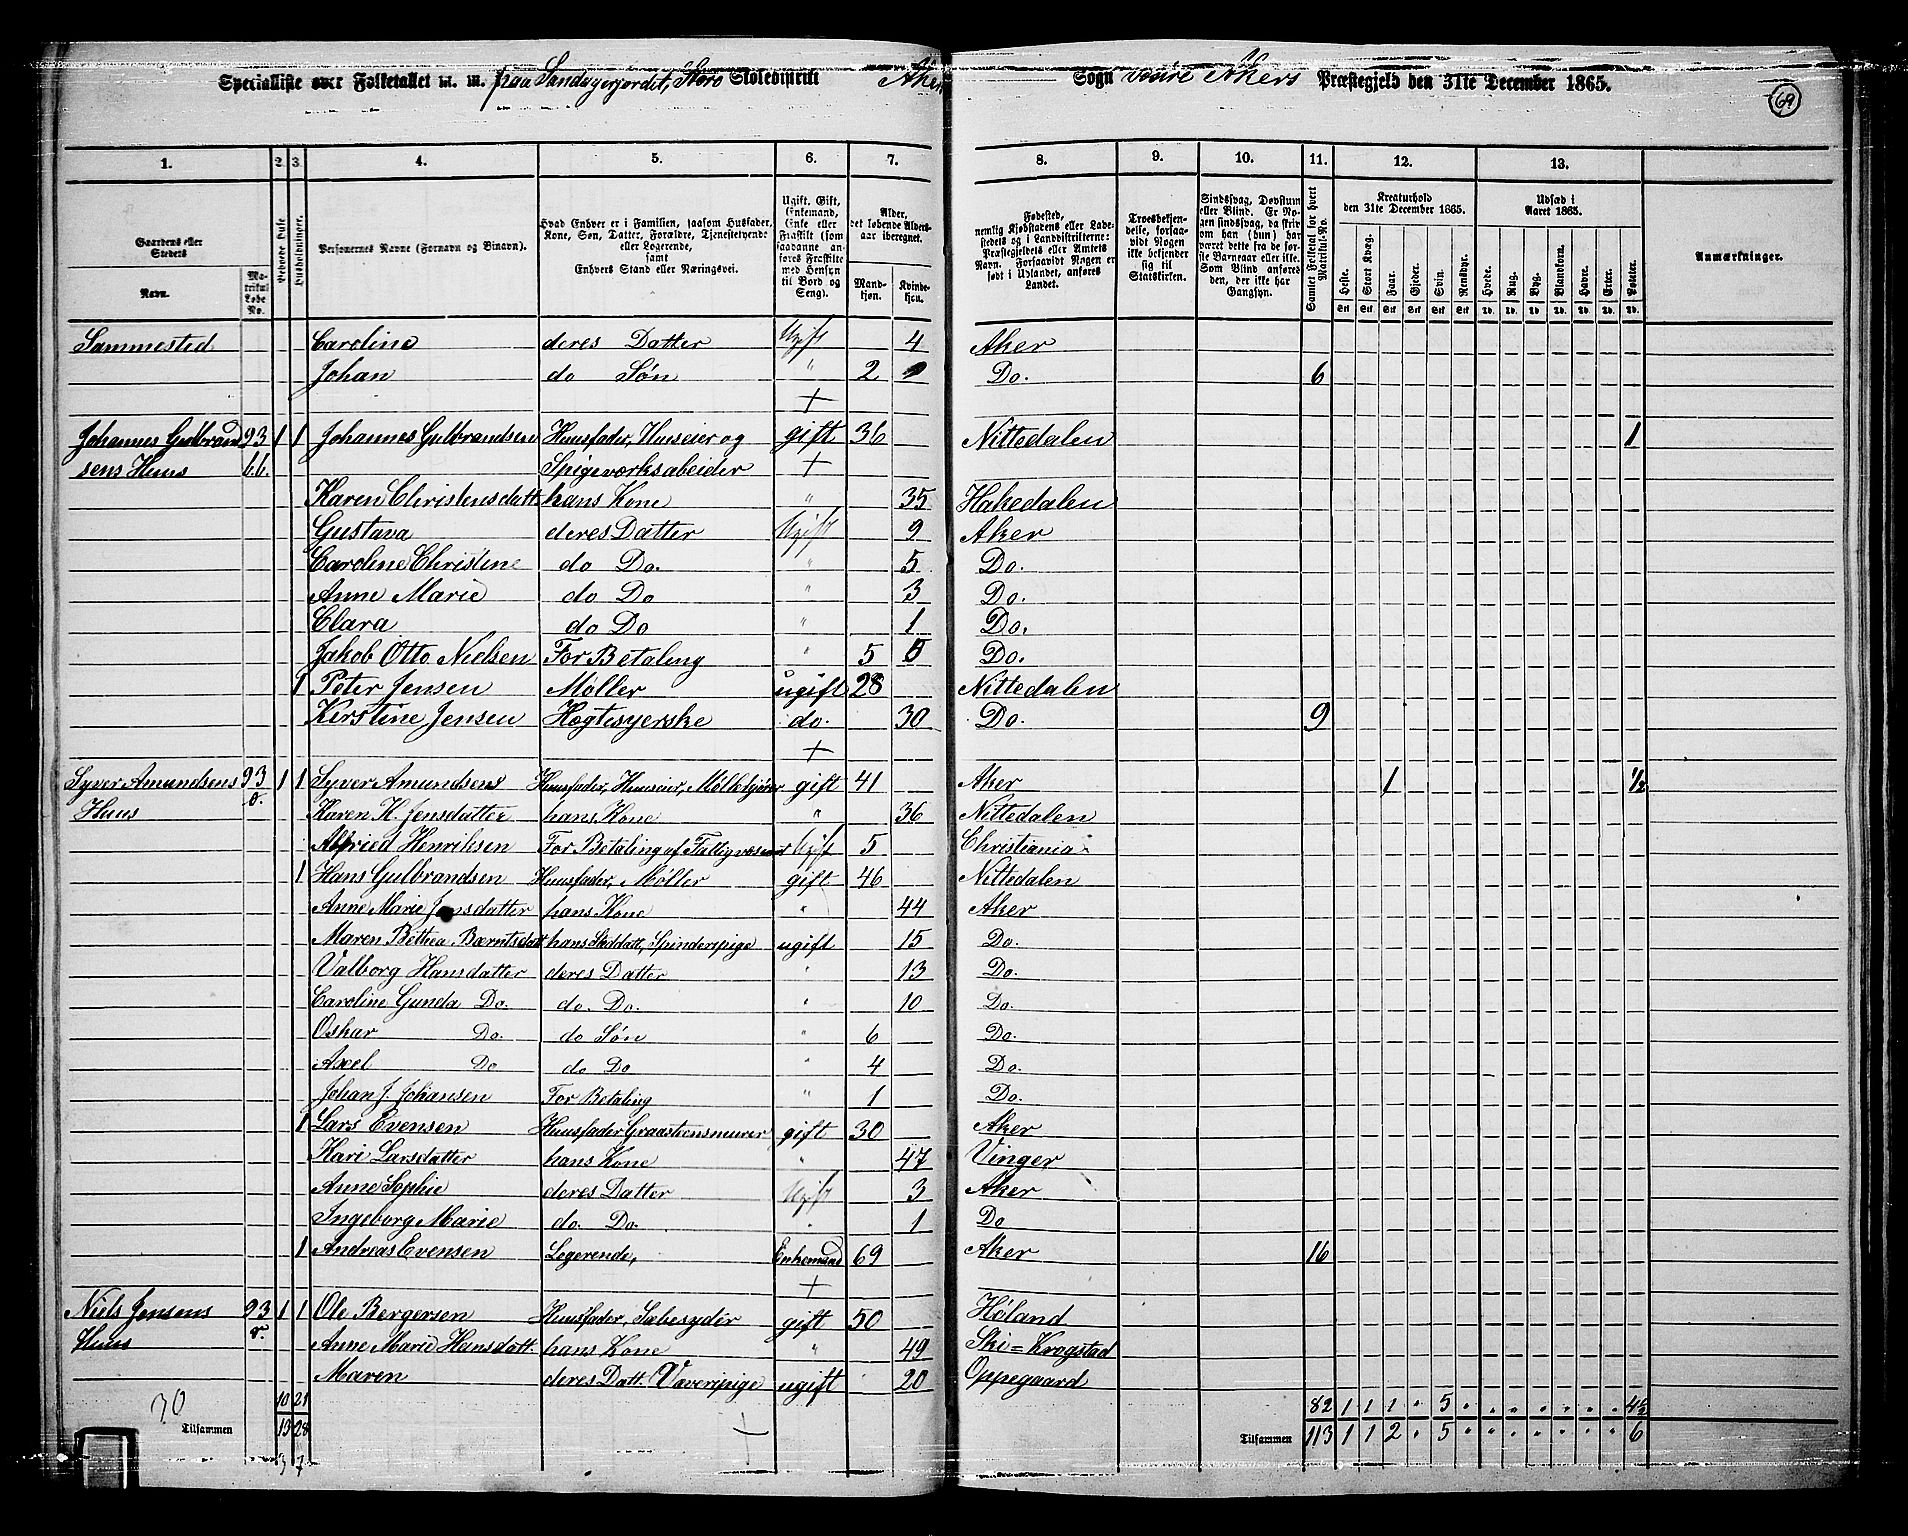 Specialliste over Folketallet m. m. paa Sandagerjordet, Skoledistrikt Aker Sogn Vestre Akers Præstegjeld den 31te December 1865.
69
1. 2. 3. 4. 5. 6. 7. 8. 9. 10. 11. 12. 13.
Gaardens eller Stedets Navn. Matrikul Løbe No. Beboede Huse Husholdninger. Personernes Navne (Fornavn og Binavn).
Hvad Enhver er i Familien, saasom Husfader, Kone, Søn, Datter, Forældre, Tjenestetyende eller Logerende, samt Enhvers Stand eller Næringsvei.
Ugift, Gift, Enkemand, Enke eller Fraskilt (som saadanne anføres Fraskilte med Hensyn til Bord og Seng).
Alder, det løbende Alders-aar iberegnet. Mandkjøn. Kvindekjøn.
Fødested, nemlig Kjøbstadens eller Ladestedets og i Landdistrikterne: Præstegjeldets eller Amtets Navn. Forsaavidt Nogen er født i Udlandet, anføres Landet.
Troesbekjendelse, forsaavidt Nogen ikke bekjender sig til Statskirken.
Sindssvag, Døvstum eller Blind. Er Nogen sindssvag, da skriv om han (hun) har været dette fra de første Barneaar eller ikke. Som Blind anføres den, der ikke har Gangsyn.
Samlet Folketal for hvert Matrikul-No.
Kreaturhold den 31te December 1865. Heste. Stort Kvæg. Faar. Gjeder. Svin. Rensdyr.
Udsæd i Aaret 1865. Hvede. Rug. Byg. Blandkorn. Havre. Erter. Poteter.
Anmærkninger.
Sammested Caroline deres Datter Ugift 4 Aker
Johan do Søn " 2 Do. 6
Johannes Gulbrand 93 1 1 Johannes Gulbrandsen Huusfader, Huuseier og gift 36 Nittedalen 1
sens Huus bb. Spigeværksabeider
Karen Christensdatt. hans Kone " 35 Hakedalen
Gustava deres Datter Ugift 9 Aker
Caroline Christine do Do. " 5 Do.
Anne Marie do Do " 3 Do.
Clara do Do " 1 Do.
Jakob Otto Nielsen For Betaling " 5 Do.
1 Peter Jensen Møller ugift 28 Nittedalen
Kirstine Jensen Høgtesyerske do. 30 Do. 9
Syver Amundsens 93 1 1 Syver Amundsens Huusfader, Huuseier, Møllekjører gift 41 Aker 1 1/2
Huus Karen K. Jensdatter hans Kone " 36 Nittedalen
Alfried Henriksen For Betaling af Fattigvæsenet Ugift 5 Christiania
1 Hans Gulbrandsen Huusfader, Møller gift 46 Nittedalen
Anne Marie Jensdatter hans Kone " 44 Aker
Maren Bethea Bærntsdatt hans Steddatt, Spinderipige ugift 15 Do.
Valborg Hansdatter deres Datter " 13 Do.
Caroline Gunda Do. do. Do. " 10 Do.
Oskar Do. do Søn " 6 Do.
Axel Do do Do " 4 Do.
Johan J. Johansen For Betaling " 1 Do.
1 Lars Evensen Huusfader Graasteensmurer gift 30 Aker
Kari Larsdatter hans Kone " 47 Vinger
Anne Sophie deres Datter Ugift 3 Aker
Ingeborg Marie do. Do. " 1 Do
1 Andreas Evensen Logerende, Enkemand 69 Aker 16
Niels Jensens 93 1 1 Ole Bergersen Huusfader, Sæbesyder gift 50 Høland
Huus Anne Marie Hansdatt. hans Kone " 49 Ski=Krogstad
Maren deres Datt. Væveripige ugift 20 Oppegaard
30 10 21 82 1 1 1 " 5 " " " " " " " 4 1/2
Tilsammen 13 28 Tilsammen 113 1 1 2 " 5 " " " " " " " 6
3 7